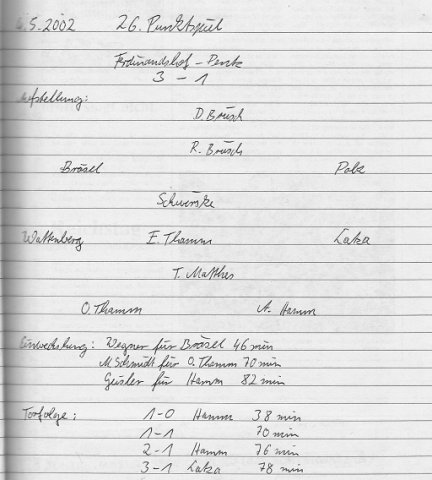 .5.2002 26. Punktspiel
Ferdinandshof - Penk
3 - 1
Aufstellung:
D. Brüsch
R. Brüsch
Brösel Polz
Schwerske
Wattenberg E. Thamm Laka
T. Matthes
O. Thamm A. Hamm
Einwechslung: Wegner für Brösel 46 min
M. Schmidt für O. Thamm 70 min
Geisler für Hamm 82 min
Torfolge: 1-0 Hamm 38 min
1-1 70 min
2-1 Hamm 76 min
3-1 Laka 78 min